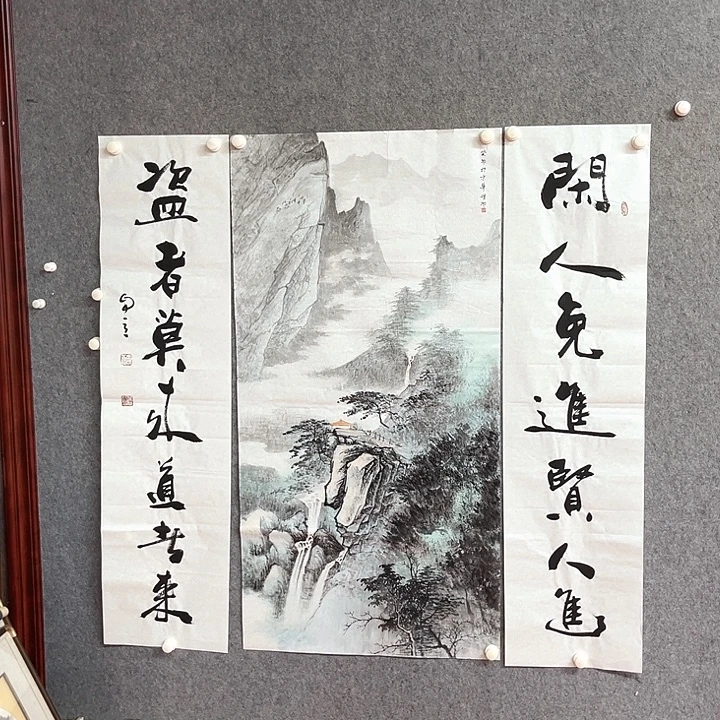 閑人免進賢人進
盗者莫来道者來